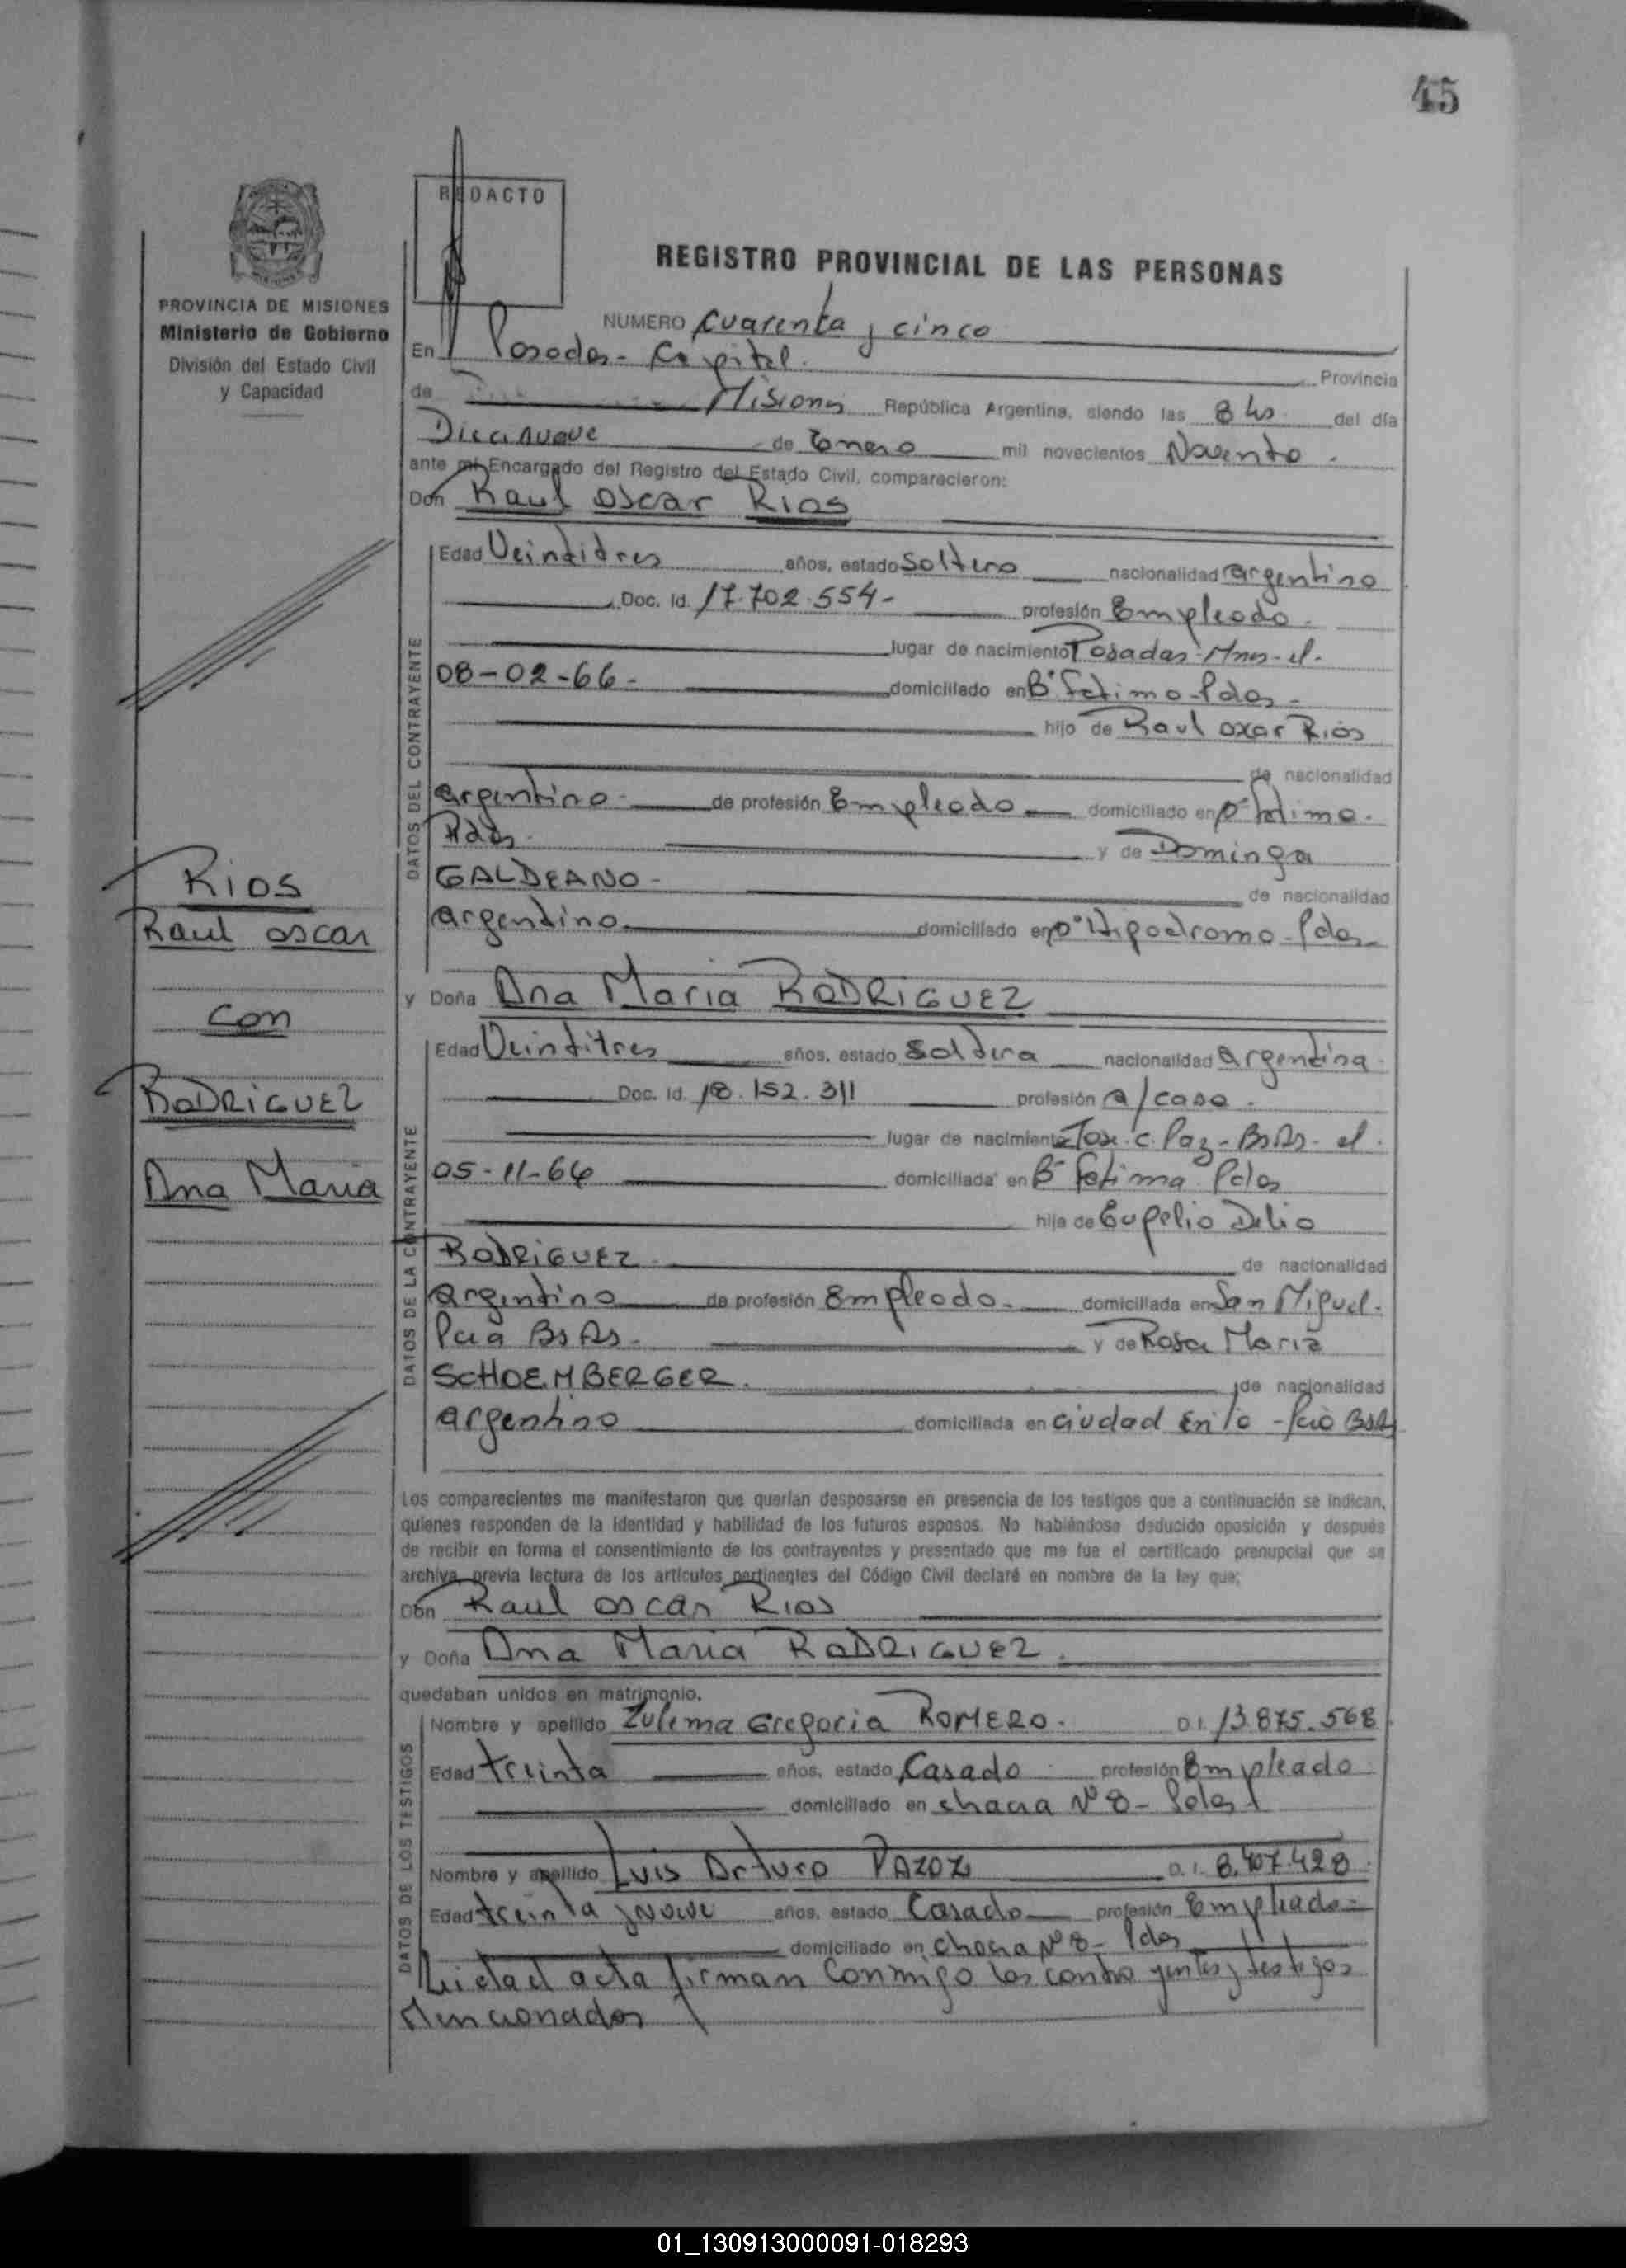 45
REDACTO
REGISTRO PROVINCIAL DE LAS PERSONAS
PROVINCIA DE MISIONES
Ministerio de Gobierno
División del Estado Civil
y Capacidad
NUMERO Cuarenta y cinco
En Posadas - Capital. Provincia
de Misiones República Argentina, siendo las 8 hs del día
Diecinueve de Enero mil novecientos Noventa.
ante mi Encargado del Registro del Estado Civil, comparecieron:
Don Raul Oscar Rios
DATOS DEL CONTRAYENTE
Edad Veintitres años, estado Soltero nacionalidad argentino
Doc. Id. 17.702.554- profesión Empleado.
lugar de nacimiento Posadas - Mnes - el.
08-02-66- domiciliado en B° Fatima - Pdas -
hijo de Raul oscar Rios
de nacionalidad
argentino - de profesión Empleado domiciliado en B° Fatima.
Pdas. y de Dominga
GALDEANO - de nacionalidad
argentino domiciliado en B° Hipodromo - Pdas -
y Doña Ana Maria RODRIGUEZ
DATOS DE LA CONTRAYENTE
Edad Veintitres años, estado Soltera nacionalidad argentina
Doc. Id. 18.152.311 profesión a/casa.
lugar de nacimiento Jose C. Paz - Bs As - el.
05-11-66 domiciliada en B° Fatima Pdas
hija de Eugelio Delio
RODRIGUEZ - de nacionalidad
argentino de profesión Empleado. domiciliada en San Miguel.
Pcia Bs As. y de Rosa Maria
SCHOEMBERGER. de nacionalidad
argentino domiciliada en ciudad - Pcia BsAs
RIOS
Raul oscar
con
RODRIGUEZ
Ana Maria
Los comparecientes me manifestaron que querían desposarse en presencia de los testigos que a continuación se indican,
quienes responden de la identidad y habilidad de los futuros esposos. No habiéndose deducido oposición y después
de recibir en forma el consentimiento de los contrayentes y presentado que me fue el certificado prenupcial que se
archiva, previa lectura de los artículos pertinentes del Código Civil declaré en nombre de la ley que;
Don Raul oscar Rios
y Doña Ana Maria RODRIGUEZ.
quedaban unidos en matrimonio.
DATOS DE LOS TESTIGOS
Nombre y apellido Zulema Gregoria ROMERO. D.I. 13.875.568
Edad treinta años, estado Casado profesión Empleado
domiciliado en chacra N° 8 - Pdas
Nombre y apellido Luis Arturo D.I. 8.407.428
Edad treinta y nueve años, estado Casado profesión Empleado -
domiciliado en chacra N° 8 - Pdas
Leida el acta firman conmigo los contrayentes y testigos
Mencionados
01_130913000091-018293